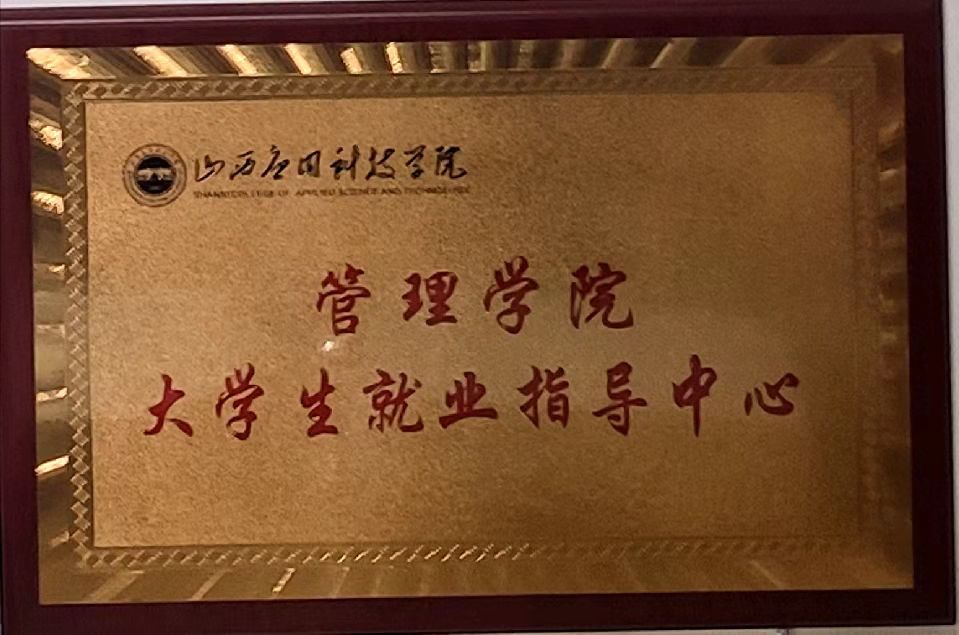 山西应用科技学院
SHANXI COLLEGE OF APPLIED SCIENCE AND TECHNOLOGY
管理学院
大学生就业指导中心